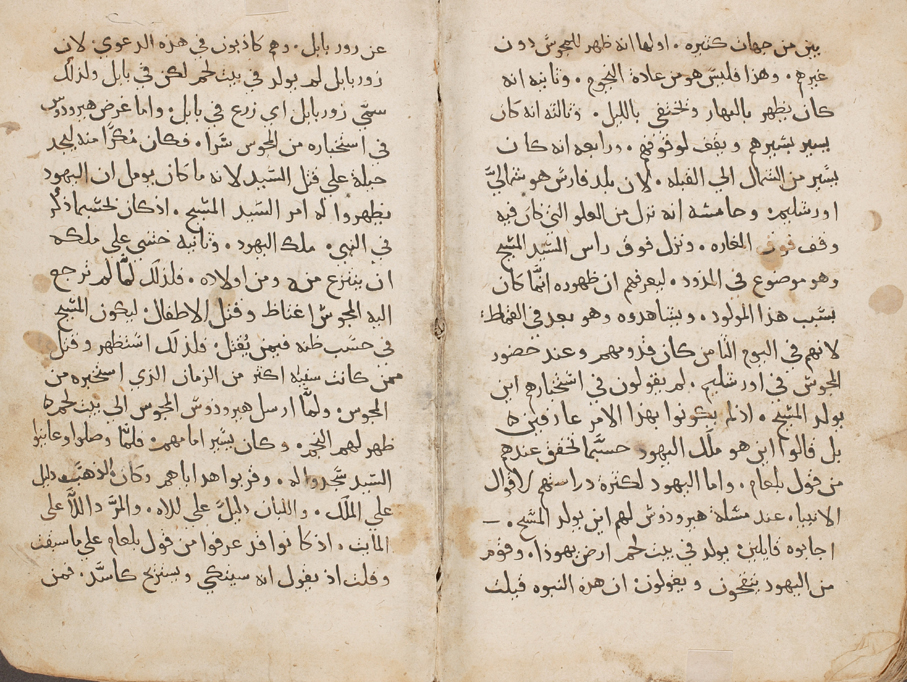 بين من جهات كثيره . اولها انه ظهر للمجوس دون
غيرهم . وهذا فليس هو من عادة النجوم . وثانيه انه
كان يظهر بالنهار ويختفي بالليل . وثالثه انه كان
يسير بسيرهم ويقف لوقوفهم . ورابعه انه كان
يسير من الشمال الي القبله . لان بلد فارس هو شمالي
اورشليم . وخامسه انه نزل من العلو الذي كان فيه
وقف فوق المغاره . ونزل فوق راس السيد المسيح
وهو موضوع في المذود . ليعرفهم ان ظهوره انما كان
بسبب هذا المولود . ويشاهدوه وهو بعد في القماط :
لانهم في اليوم الثامن كان قدومهم وعند حضور
المجوس في اورشليم . لم يقولون في استخبارهم اين
يولد المسيح . اذ لم يكونوا بهذا الامر عارفين
بل قالوا اين هو ملك اليهود حسبما تحقق عندهم
من قول بلعام . واما اليهود لكثرة دراستهم لاقوال
الانبيا . عند مسلة هيرودوس لهم اين يولد المسيح .
اجابوه قايلين . يولد في بيت لحم ارض يهوذا . وقوم
من اليهود يتقحون ويقولون . ان هذه النبوه قيلت
عن زور بابل . وهم كاذبون في هذه الدعوي . لان
زور بابل لم يولد في بيت لحم لكن في بابل ولذلك
سمي زور بابل اي زرع في بابل . واما غرض هيرودوس
في استخباره من المجوس سرا . فكان مكرا منه ليجد
حيلة علي قتل السيد لانه ما كان يومل ان اليهود
يظهروا له امر السيد المسيح . اذ كان تحتسما ذكر
في النبي . ملك اليهود . وثانية خشي علي ملكه
ان ينتزع منه ومن اولاده . فلذلك لما لم ترجع
اليه المجوس اغتاظ وقتل الاطفال . ليكون المسيح
في حسب ظنه فيمن يقتل . فلذلك استظهر وقتل
ممن كانت سنينه اكثر من الزمان الذي استخبره من
المجوس . ولما ارسل هيرودوس المجوس الي بيت لحم
ظهر لهم النجم . وكان يسير امامهم . فلما وصلوا وعاينوا
السيد سجدوا له . وقربوا هداياهم وكان الذهب دليل
علي الملك . واللبان دليل علي للاه . والمر دالا علي
المايت . اذ كانوا قد عرفوا من قول بلعام علي ما سبقت
وقلت اذ يقول انه سيتكي ويستريح كاسد . فمن